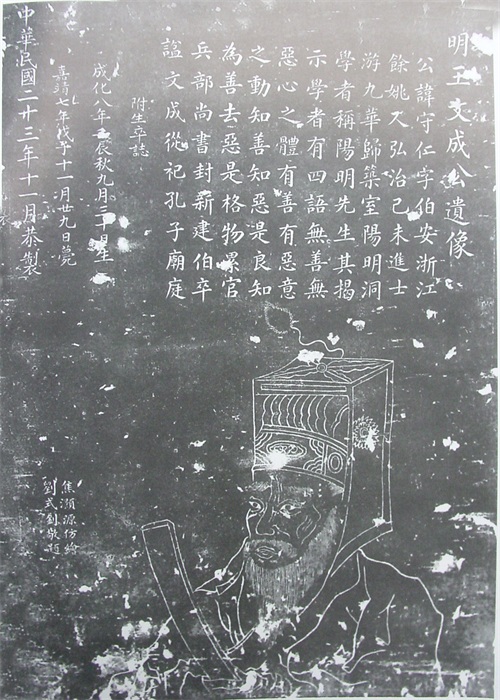 明王文成公遺像
公諱守仁字伯安浙江
餘姚人弘治己未進士
游九華歸築室陽明洞
學者稱陽明先生其揭
示學者有四語無善無
惡心之體有善有惡意
之動知善知惡是良知
為善去惡是格物累官
兵部尚書封新建伯卒
諡文成從祀孔子廟庭
附生卒誌
成化八年壬辰秋九月三十日生
嘉靖七年戊子十一月廿九日薨
中華民國二十三年十一月恭製
源仿
劉式釗敬題